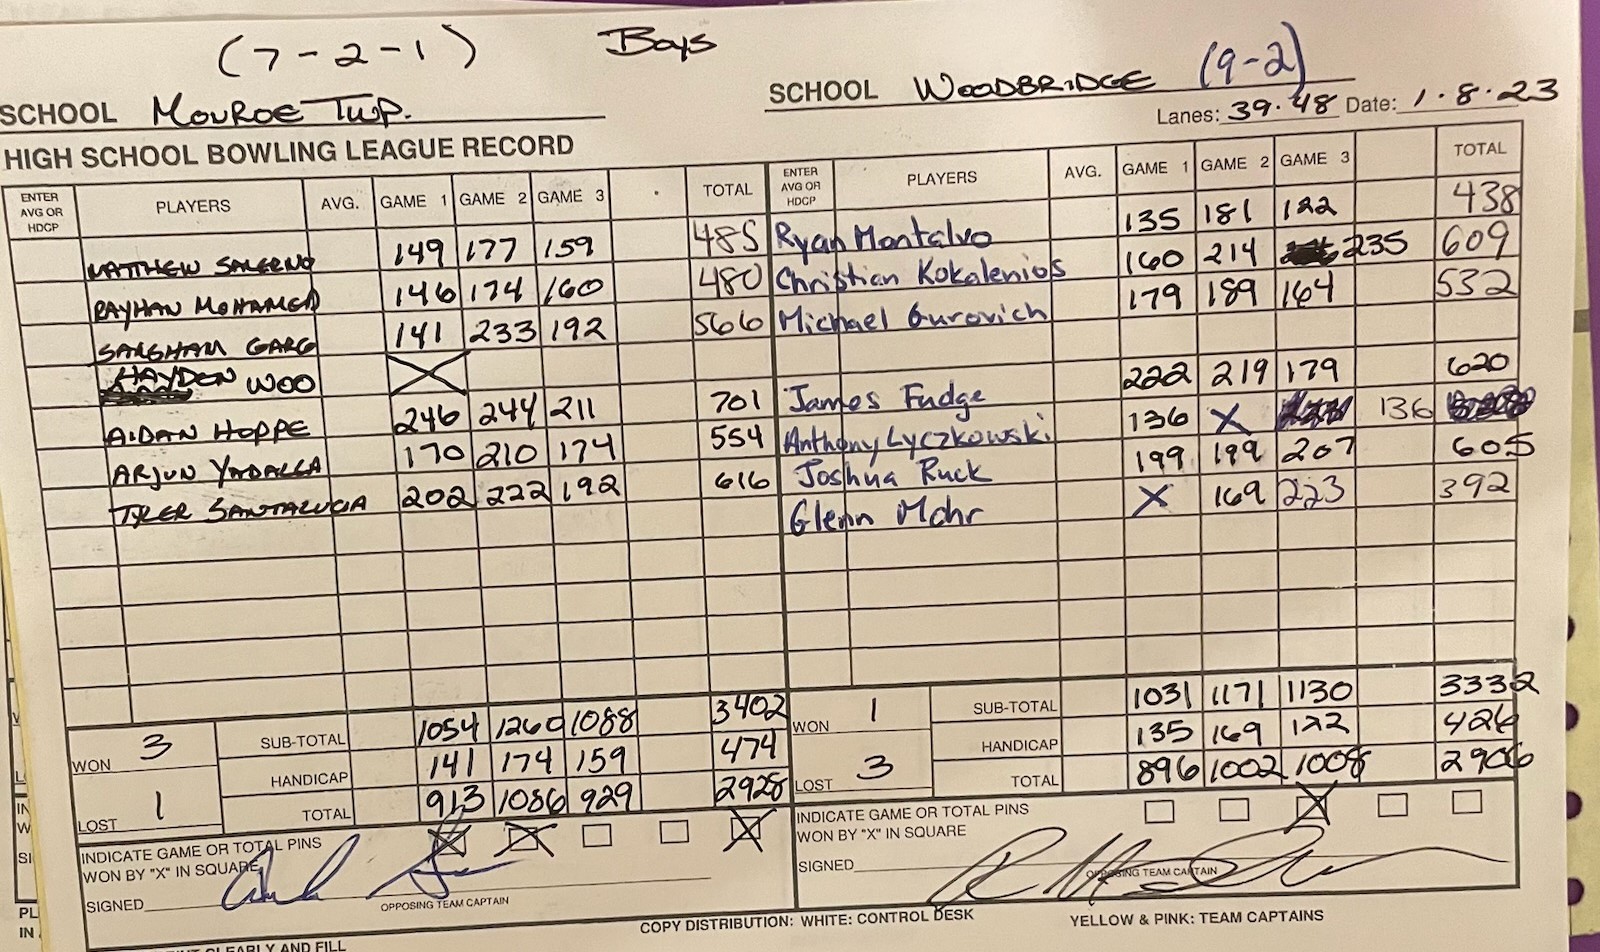 (7-2-1) Boys
SCHOOL MONROE TWP. SCHOOL WOODBRIDGE (9-2)
Lanes: 39.48 Date: 1.8.23
HIGH SCHOOL BOWLING LEAGUE RECORD
ENTER AVG OR HDCP PLAYERS AVG. GAME 1 GAME 2 GAME 3 TOTAL ENTER AVG OR HDCP PLAYERS AVG. GAME 1 GAME 2 GAME 3 TOTAL
MATTHEW SALERNO 149 177 159 485 Ryan Montalvo 135 181 122 438
RAYHAN MOHAMED 146 174 160 480 Christian Kokalenios 160 214 235 609
SAKSHAM GARG 141 233 192 566 Michael Gurovich 179 189 164 532
HAYDEN WOO X
AIDAN HOPPE 246 244 211 701 James Fudge 222 219 179 620
ARJUN YADALLA 170 210 174 554 Anthony Lyczkowski 136 X 136
TYLER SANTALUCIA 202 222 192 616 Joshua Ruck 199 199 207 605
Glenn Mohr X 169 223 392
WON 3 SUB-TOTAL 1054 1260 1088 3402 WON 1 SUB-TOTAL 1031 1171 1130 3332
HANDICAP 141 174 159 474 HANDICAP 135 169 122 426
LOST 1 TOTAL 913 1086 929 2928 LOST 3 TOTAL 896 1002 1008 2906
INDICATE GAME OR TOTAL PINS X X X INDICATE GAME OR TOTAL PINS X
WON BY "X" IN SQUARE WON BY "X" IN SQUARE
SIGNED SIGNED
OPPOSING TEAM CAPTAIN OPPOSING TEAM CAPTAIN
COPY DISTRIBUTION: WHITE: CONTROL DESK YELLOW & PINK: TEAM CAPTAINS
CLEARLY AND FILL